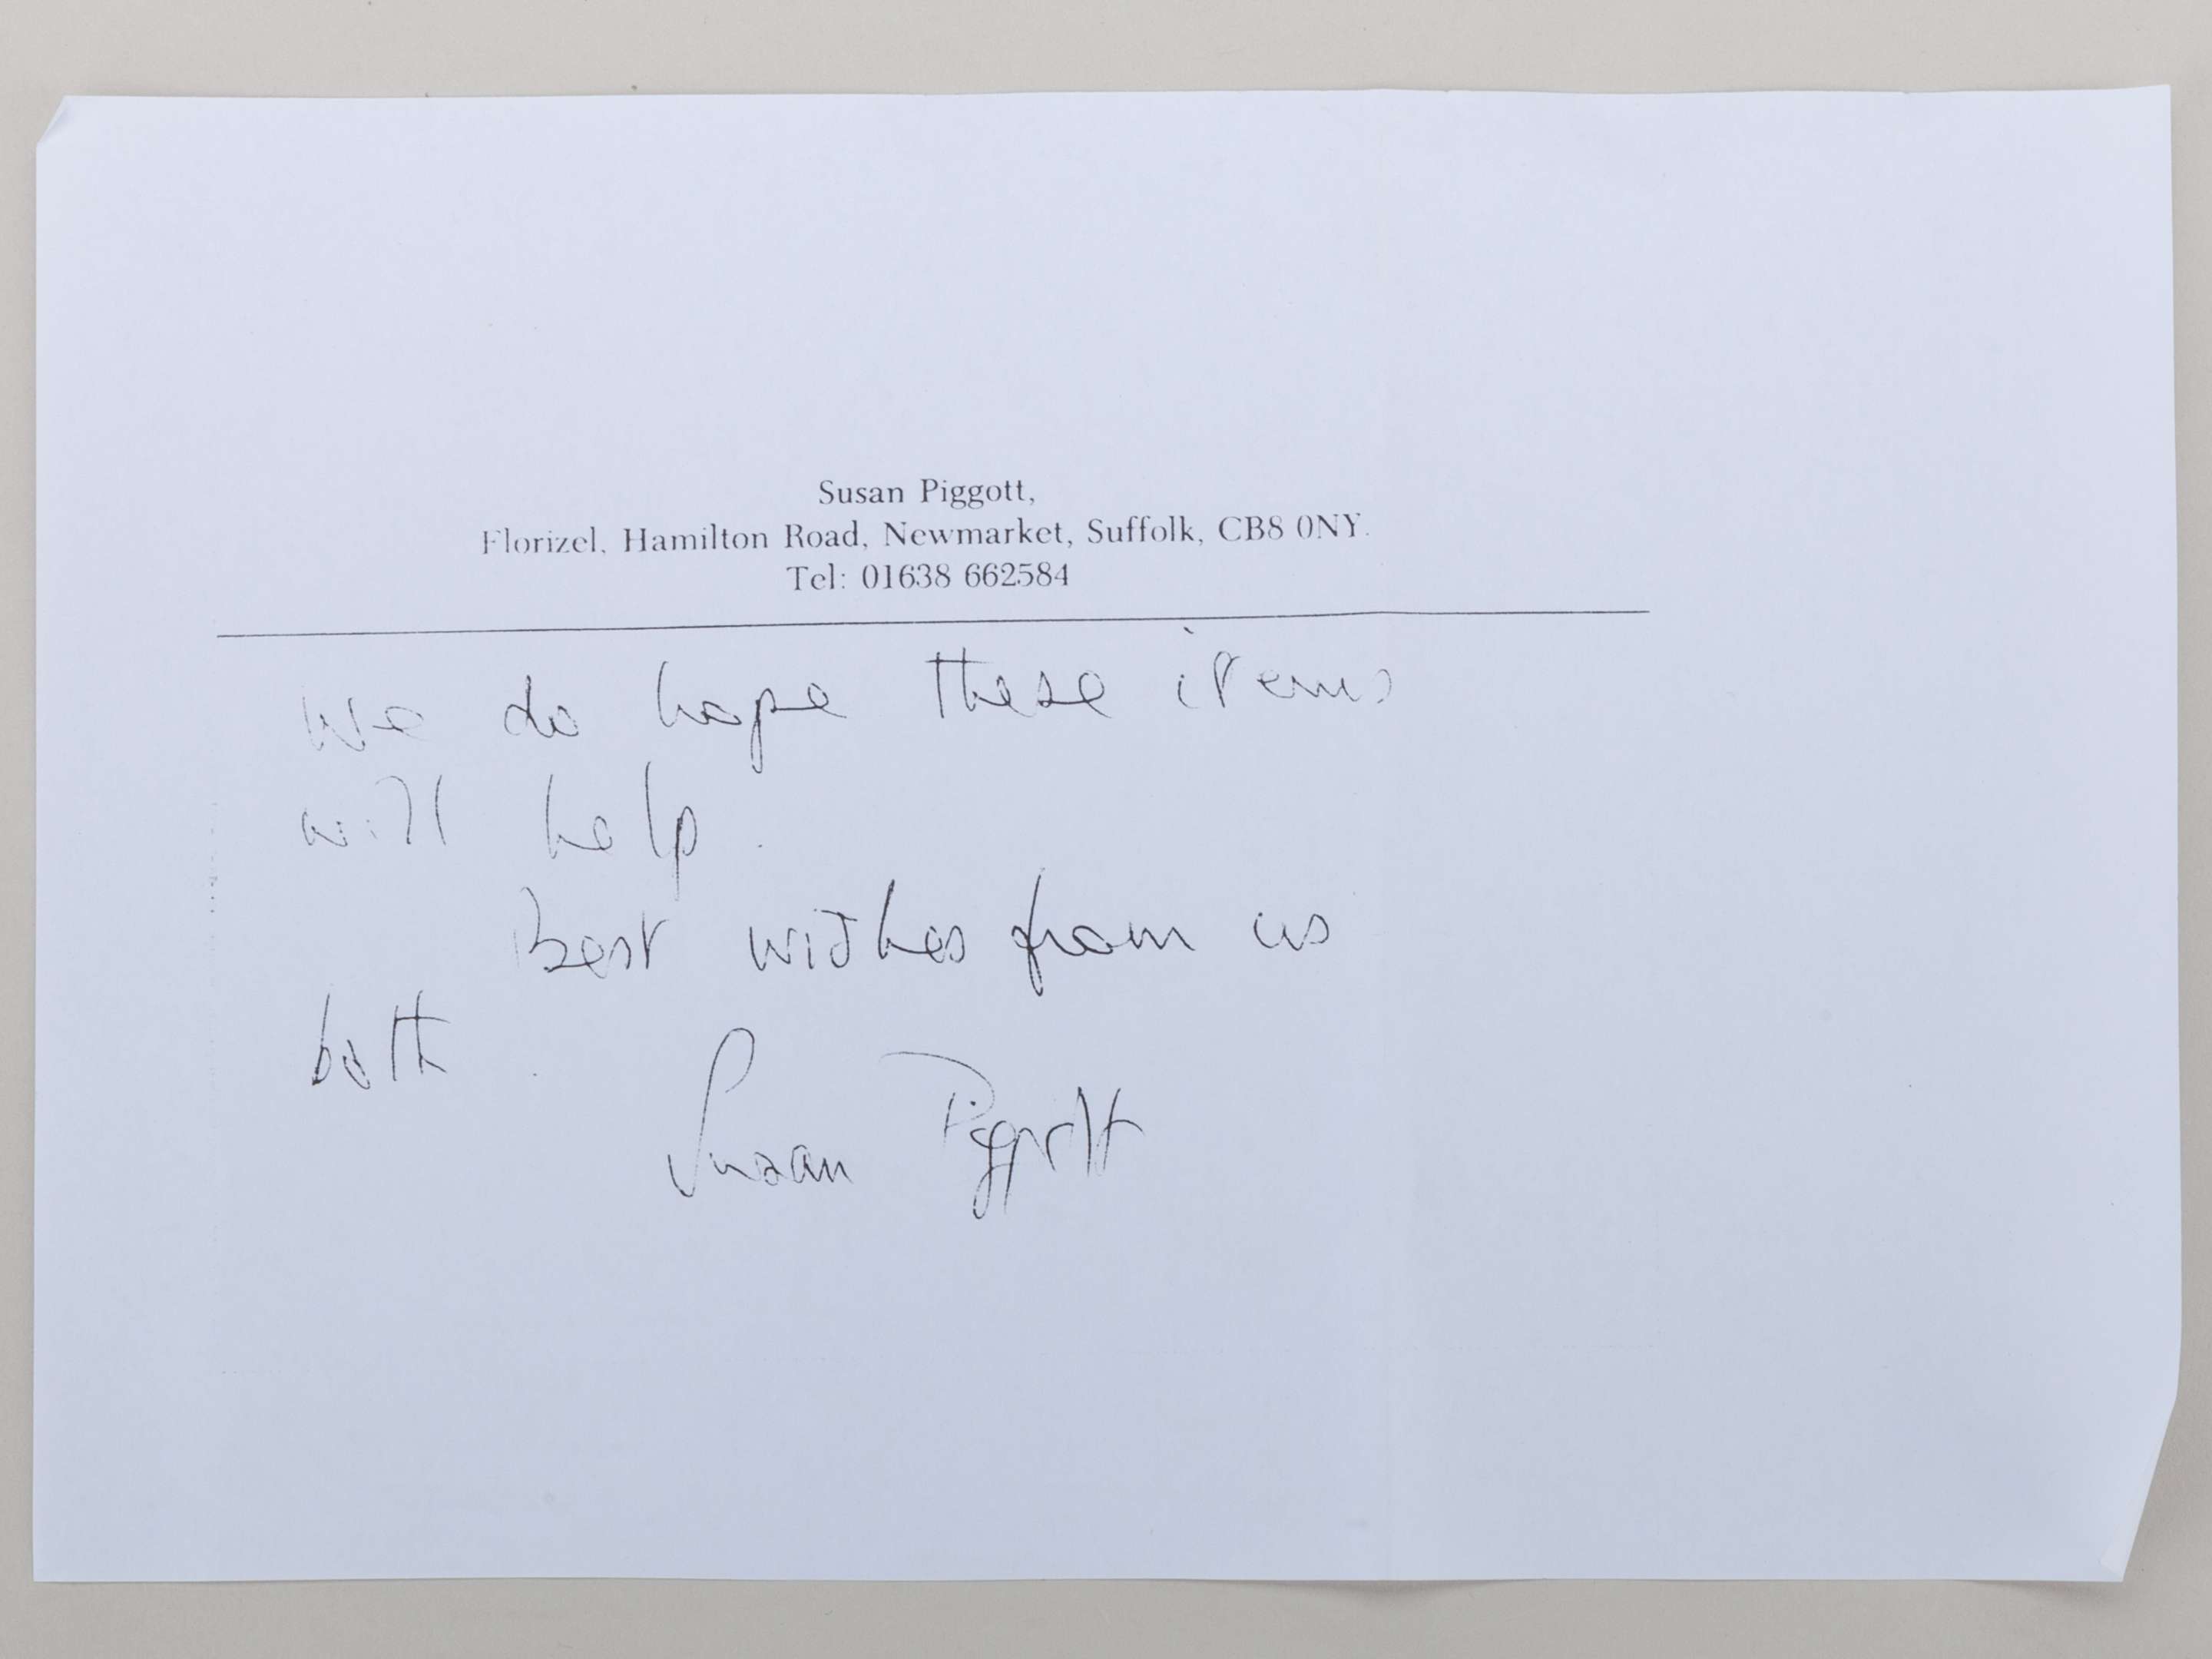 Susan Piggott,
Florizel, Hamilton Road, Newmarket, Suffolk, CB8 0NY.
Tel: 01638 662584
We do hope these items
will help.
Best wishes from us
both.
Susan Piggott